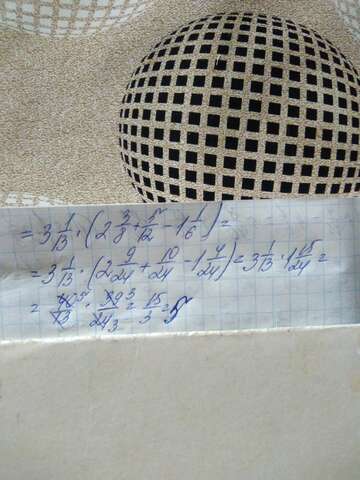 = 3 1/13 · (2 3/8 + 5/12 - 1 1/6) =
= 3 1/13 · (2 9/24 + 10/24 - 1 4/24) = 3 1/13 · 1 15/24 =
= 40⁵/13 · 39³/24₃ = 15/3 = 5